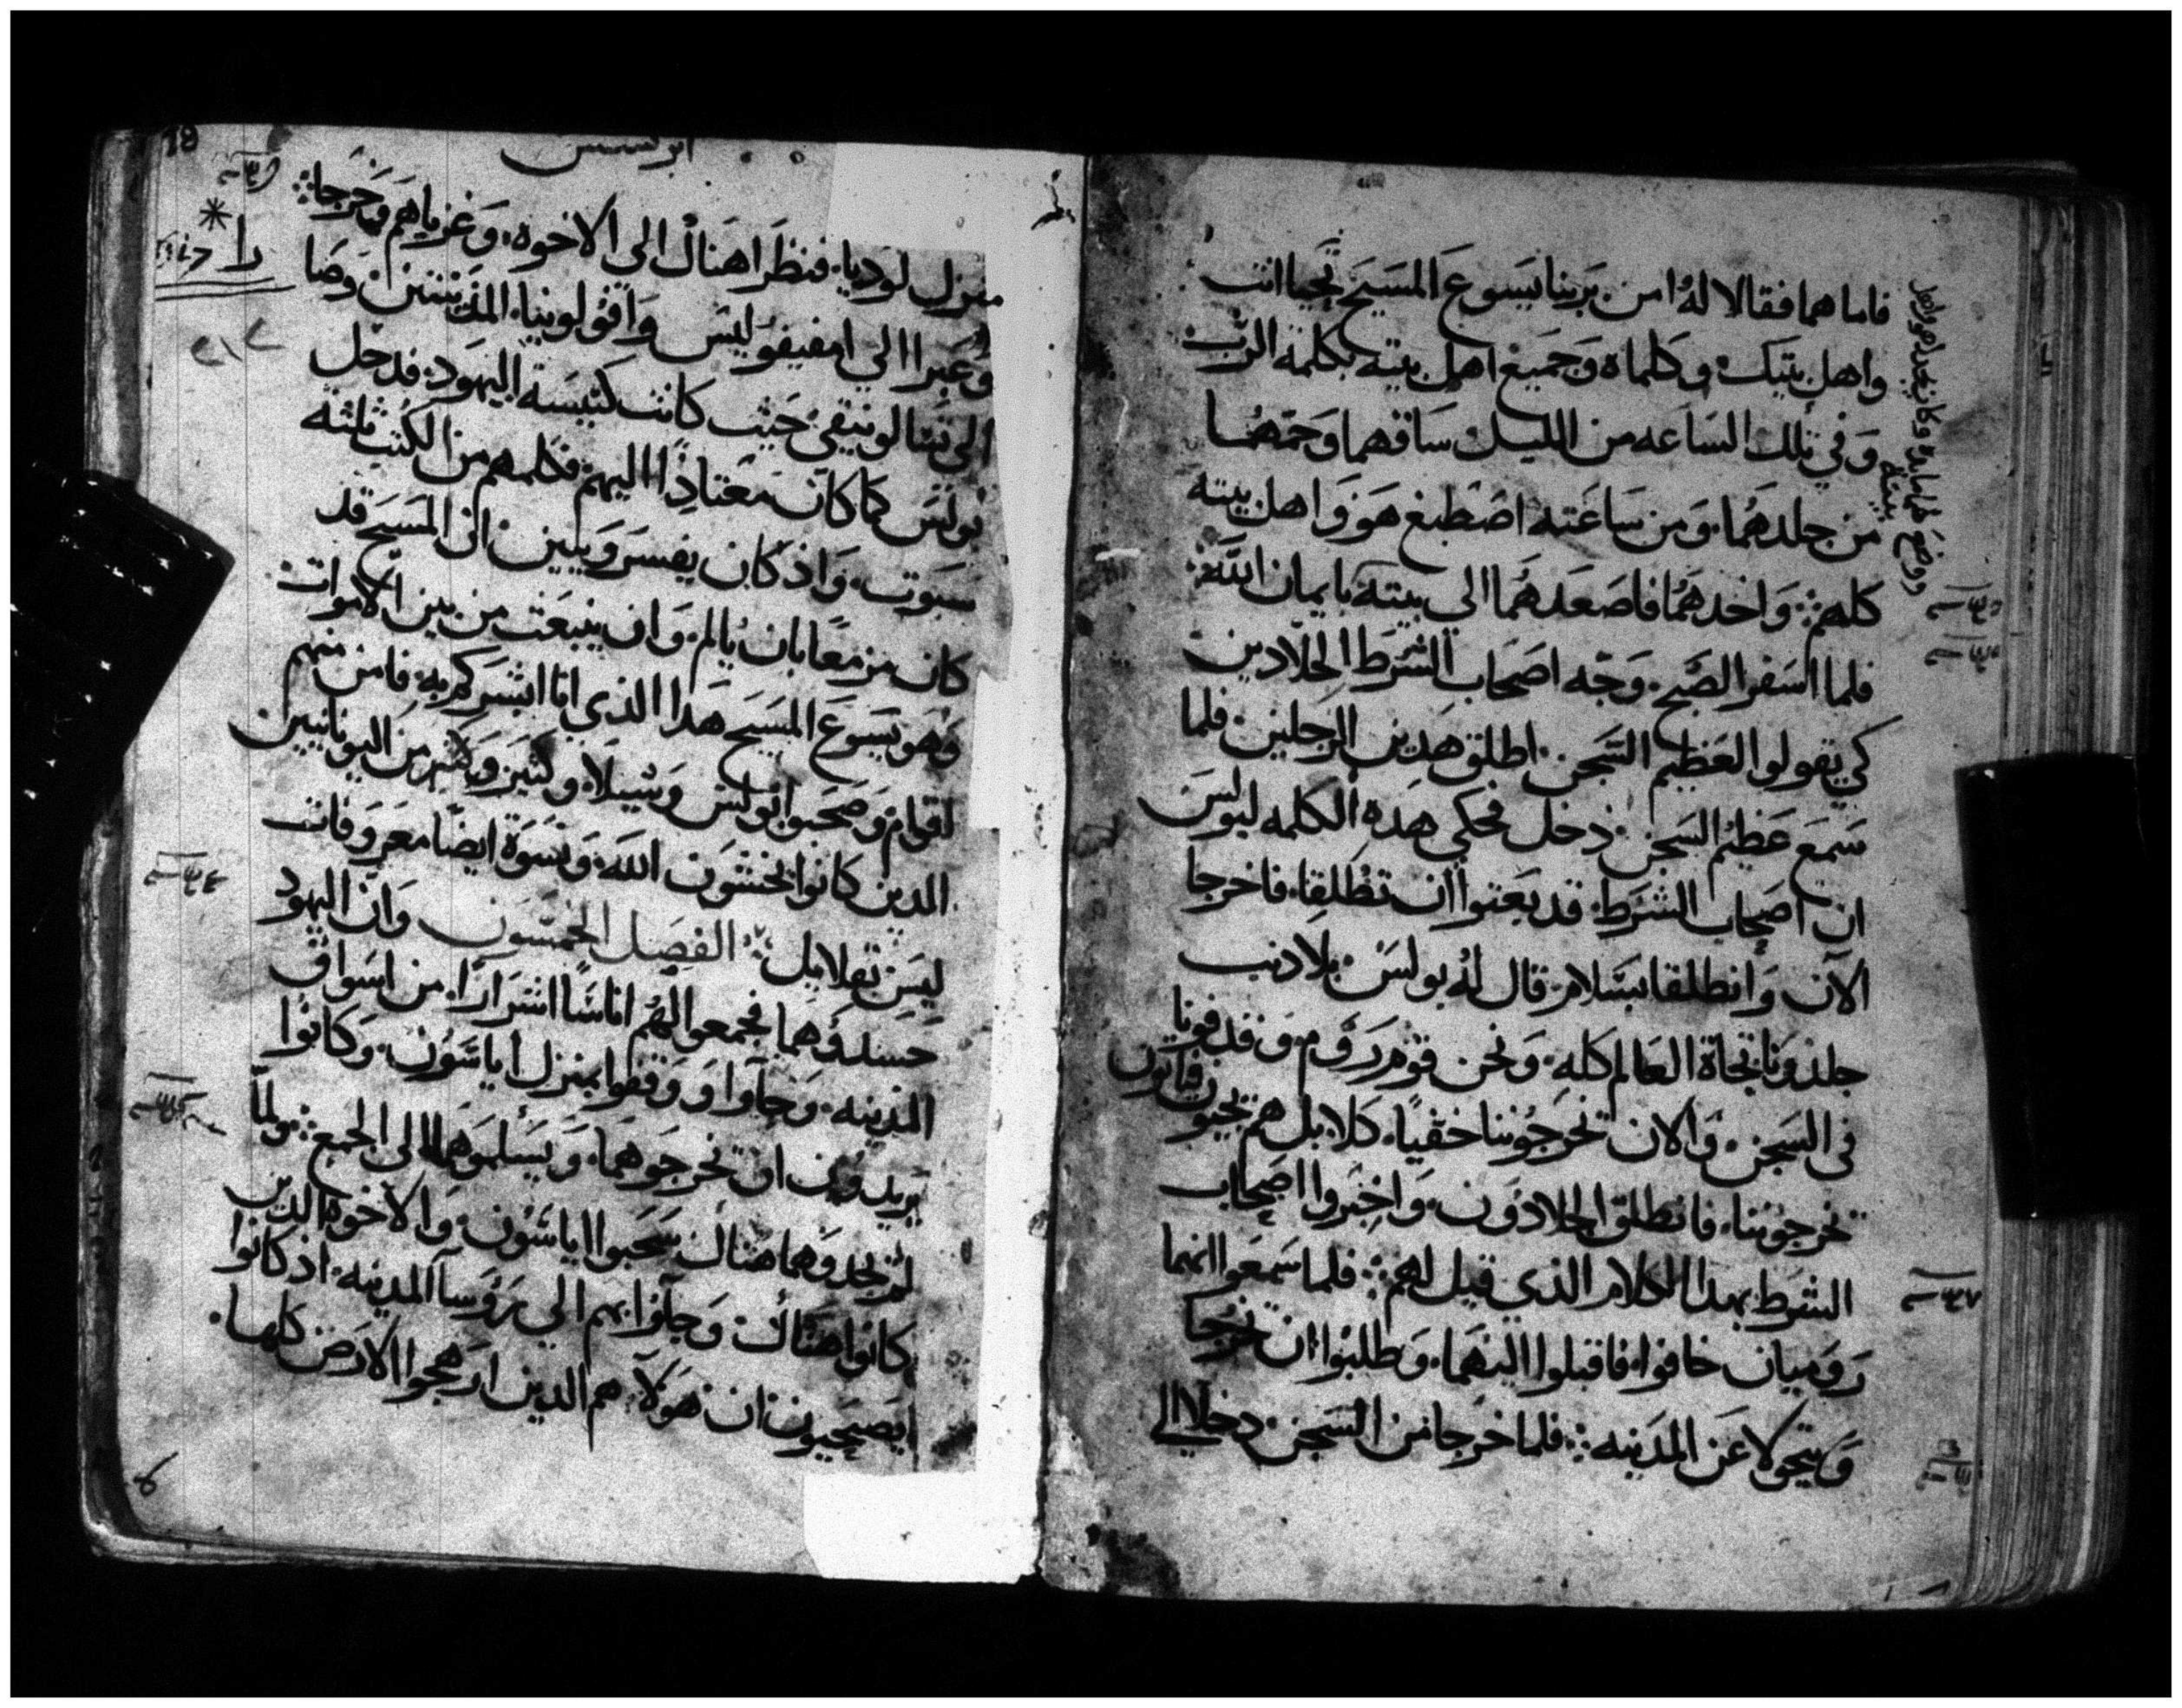 فاما هما فقالا له امن بربنا يسوع المسيح تحيا انت
واهل بيتك وكلماه وجميع اهل بيته بكلمه الرب
وفي تلك الساعه من الليل ساقهما وحمهما
من جلدهما ومن ساعته اصطبغ هو واهل بيته
كلهم واخدهما فاصعدهما الي بيته بايمان الله
فلما اسفر الصبح وجه اصحاب الشرط الجلادين
كي يقولوا لعظيم السجن اطلق هدين الرجلين فلما
سمع عظيم السجن دخل فحكي هده الكلمه لبولس
ان اصحاب الشرط قد بعثوا ان تطلقا فاخرجا
الآن وانطلقا بسلام قال له بولس بلا دنب
جلدونا تجاة العالم كله ونحن قوم روم وقدفونا
في السجن والان تخرجوننا خفيا كلا بل هم يجيون فياتون
تخرجوننا فانطلق الجلادون واخبروا اصحاب
الشرط بهدا الكلام الذي قيل لهم فلما سمعوا انهما
روميان خافوا فاقبلوا اليهما وطلبوا ان يخرجا
ويتحولا عن المدينه فلما خرجا من السجن دخلا الي
ابركسيس
منزل لوديا فنظرا هناك الى الاخوه وعزياهم وخرجا
وعبرا الي امفيفوليس وافولونيا المدينتين وصا
الي تسالونيقي حيث كانت كنيسة اليهود فدخل
بولس كما كان معتادا اليهم فكلمهم من الكتب ثلثه
سبوت واذ كان يفسر ويبين ان المسيح قد
كان مزمعا بان يالم وان ينبعث من بين الاموات
وهو يسوع المسيح هدا الذي انا ابشركم به فامن منهم
اقوام وصحبوا بولس وشيلا وكثير من اليونانيين
الدين كانوا يخشون الله ونسوة ايضا معروفات
ليس بقلايل الفصل الخمسون وان اليهود
حسدوهما فجمعوا لهم اناسا اشرارا من اسواق
المدينه وجآوا ووقفوا بمنزل اياسون وكانوا
يريدون ان تخرجوهما ويسلموهما الى الجمع ولما
لم يجدوهما هناك سحبوا اياسون والاخوه الدين
كانوا هناك وجآوا بهم الي رؤسآ المدينه اد كانوا
يصيحيون ان هولآ هم الدين ارهجوا الارض كلها